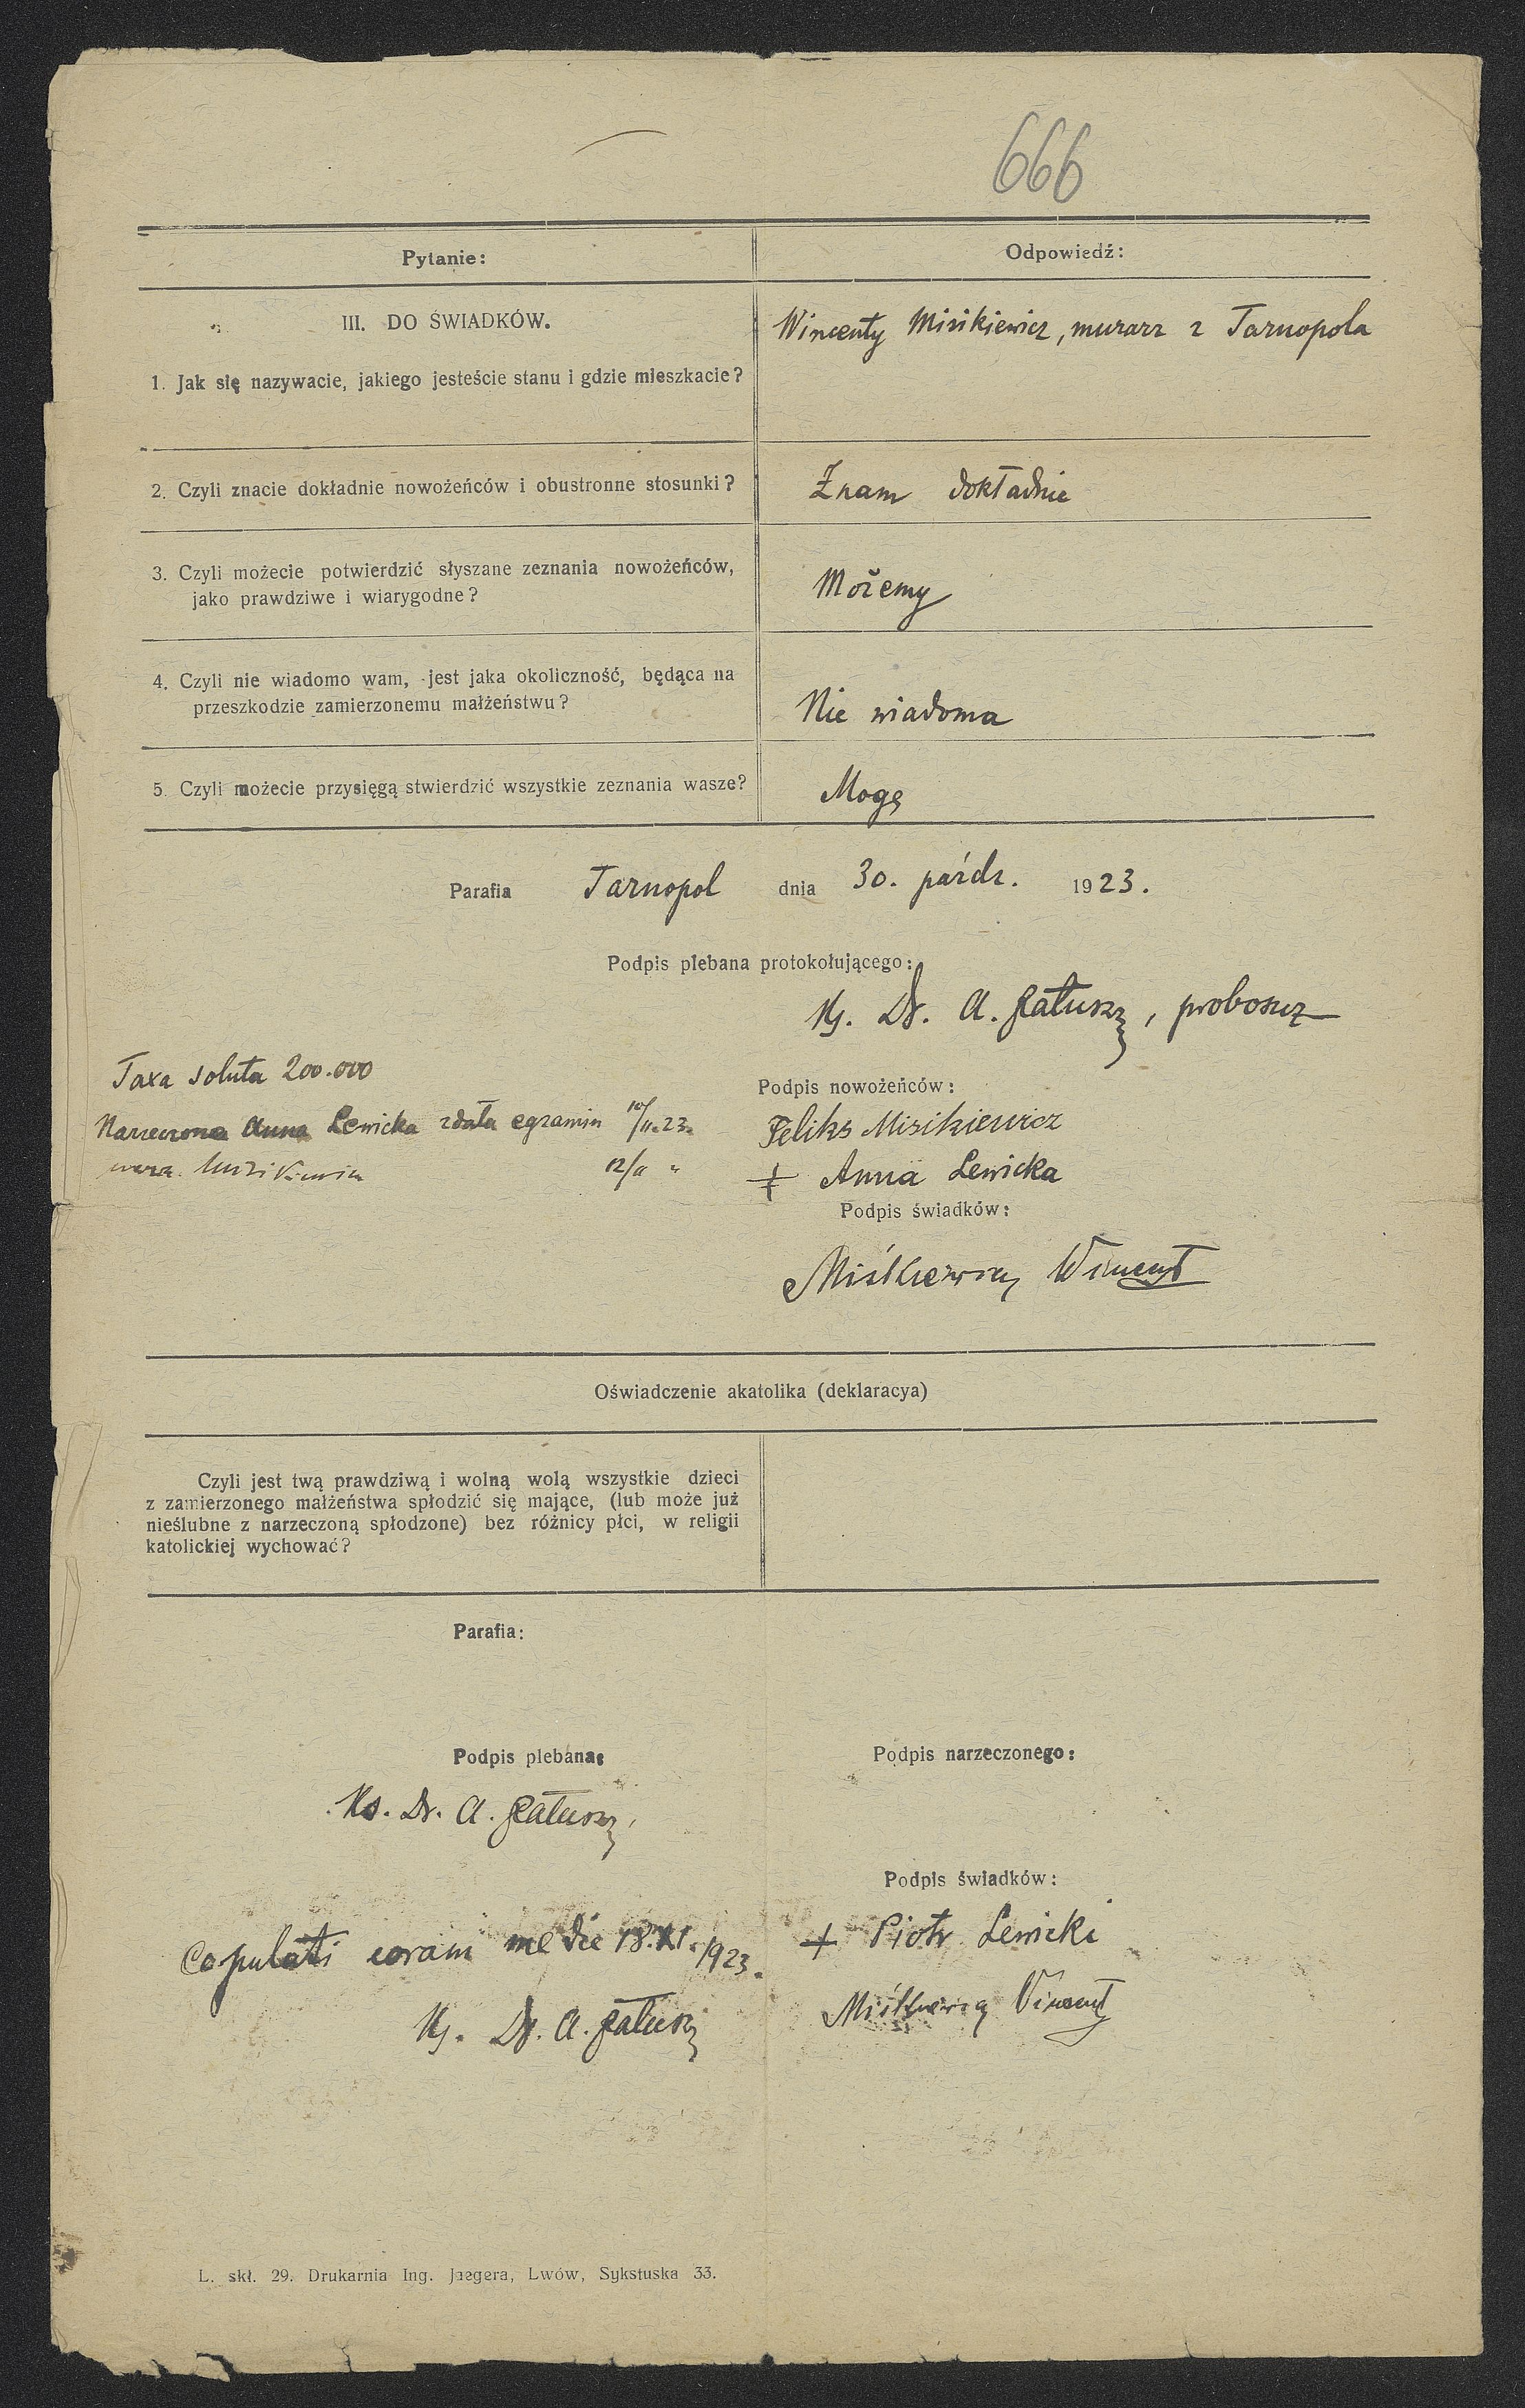 666
Pytanie:
Odpowiedź:
III. DO ŚWIADKÓW.
1. Jak się nazywacie, jakiego jesteście stanu i gdzie mieszkacie?
Wincenty Misikiewicz, murarz z Tarnopola
2. Czyli znacie dokładnie nowożeńców i obustronne stosunki?
Znam dokładnie
3. Czyli możecie potwierdzić słyszane zeznania nowożeńców,
jako prawdziwe i wiarygodne?
Możemy
4. Czyli nie wiadomo wam, jest jaka okoliczność, będąca na
przeszkodzie zamierzonemu małżeństwu?
Nie wiadoma
5. Czyli możecie przysięgą stwierdzić wszystkie zeznania wasze?
Mogę
Parafia Tarnopol dnia 30. paźdz. 1923.
Podpis plebana protokołującego:
Ks. Dr. A. , proboszcz
Taxa soluta 200.000
Narzeczona Anna Lewicka zdała egzamin 10/11.23.
12/11 "
Podpis nowożeńców:
Feliks Misikiewicz
+ Anna Lewicka
Podpis świadków:
Miśkiewicz Wincenty
Oświadczenie akatolika (deklaracya)
Czyli jest twą prawdziwą i wolną wolą wszystkie dzieci
z zamierzonego małżeństwa spłodzić się mające, (lub może już
nieślubne z narzeczoną spłodzone) bez różnicy płci, w religii
katolickiej wychować?
Parafia:
Podpis plebana:
Ks. Dr. A.
Podpis narzeczonego:
Podpis świadków:
+ Piotr Lewicki
Miśkiewicz Wincenty
Copulati coram me die 18.XI.1923.
Ks. Dr. A.
L. skł. 29. Drukarnia Ing. Jaegera, Lwów, Sykstuska 33.